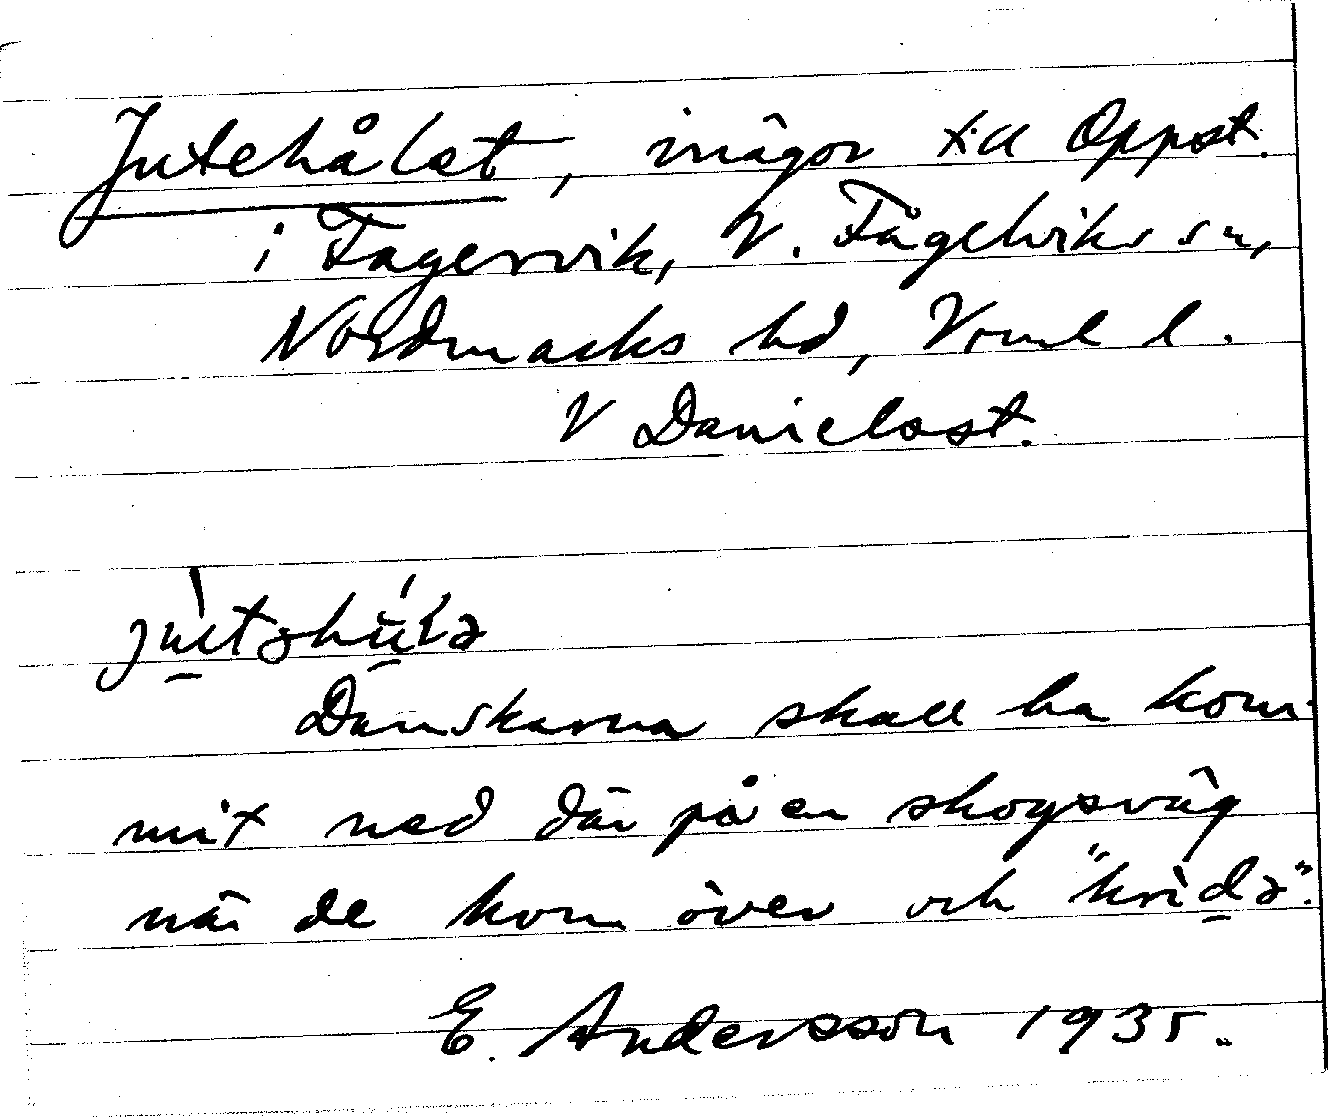 Jutehålet, inägor till Oppst.
i Fagervik, V. Fågelviks sn,
Nordmarks hd, Vrml l.
V Danielsst.
Danskarna skall ha kom-
mit ned där på en skogsväg
när de kom över och "krida".
E. Andersson 1935.